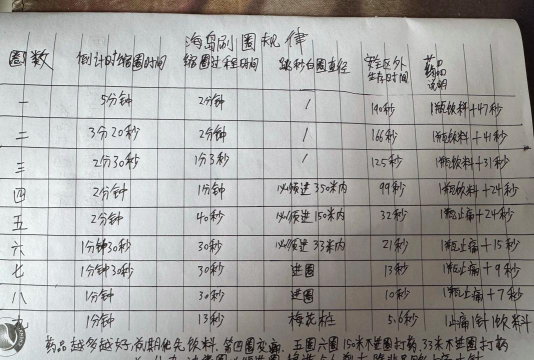 海岛刷圈规律
圈数 倒计时缩圈时间 缩圈过程时间 跳秒白圈直径 安全区外生存时间 药品说明
一 5分钟 2分钟 / 190秒 1瓶饮料+47秒
二 3分20秒 2分钟 / 166秒 1瓶饮料+41秒
三 2分30秒 1分3秒 / 125秒 1瓶饮料+31秒
四 2分钟 1分钟 必须进350米内 99秒 1瓶饮料+24秒
五 2分钟 40秒 必须进150米内 32秒 1瓶止痛+24秒
六 1分钟30秒 30秒 必须进33米内 21秒 1瓶止痛+15秒
七 1分钟30秒 30秒 进圈 13秒 1瓶止痛+9秒
八 1分钟 30秒 进圈 10秒 1瓶止痛+7秒
九 1分钟 13秒 梅花桩 5.6秒 1止痛1针1饮料
药品越多越好,前期优先饮料,第四圈交痛,五圈六圈150米不进圈打药,33米不进圈打药